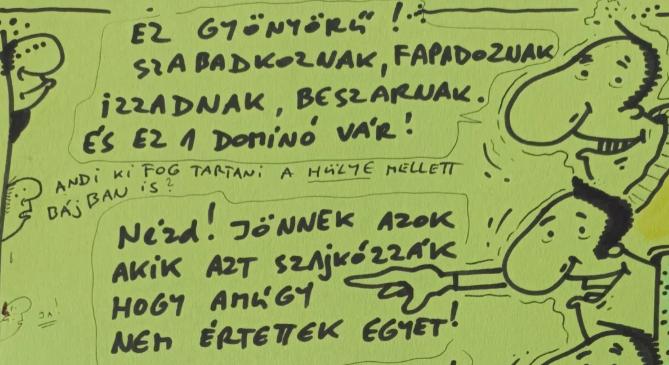 EZ GYÖNYÖRŰ!
SZABADKOZNAK, FAPADOZNAK
IZZADNAK, BESZARNAK.
ÉS EZ 1 DOMINÓ VÁR!
ANDI KI FOG TARTANI A HÜLYE MELLETT
BÁJBAN IS?
Nézd! JÖNNEK AZOK
AKIK AZT SZAJKÓZZÁK
HOGY AMÚGY
NEM ÉRTETTEK EGYET!